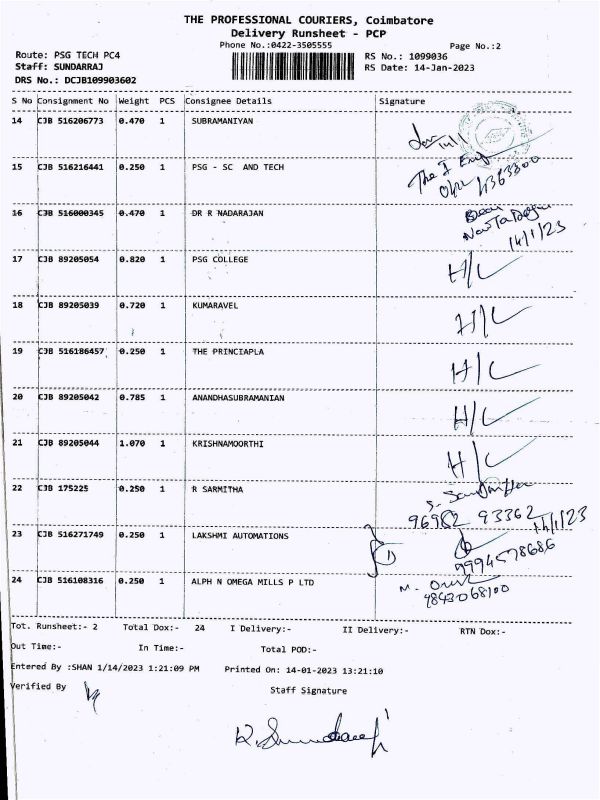 THE PROFESSIONAL COURIERS, Coimbatore
Delivery Runsheet - PCP
Phone No.:0422-3505555
Page No.:2
Route: PSG TECH PC4
RS No.: 1099036
Staff: SUNDARRAJ
RS Date: 14-Jan-2023
DRS No.: DCJB109903602
S No Consignment No Weight PCS Consignee Details Signature
14 CJB 516206773 0.470 1 SUBRAMANIYAN
15 CJB 516216441 0.250 1 PSG - SC AND TECH
16 CJB 516000345 0.470 1 DR R NADARAJAN
14/1/23
17 CJB 89205054 0.820 1 PSG COLLEGE H/C
18 CJB 89205039 0.720 1 KUMARAVEL H/C
19 CJB 516186457 0.250 1 THE PRINCIAPLA H/C
20 CJB 89205042 0.785 1 ANANDHASUBRAMANIAN H/C
21 CJB 89205044 1.070 1 KRISHNAMOORTHI H/C
22 CJB 175225 0.250 1 R SARMITHA
93362 14/1/23
23 CJB 516271749 0.250 1 LAKSHMI AUTOMATIONS
9994578686
24 CJB 516108316 0.250 1 ALPH N OMEGA MILLS P LTD
9843068100
Tot. Runsheet:- 2 Total Dox:- 24 I Delivery:- II Delivery:- RTN Dox:-
Out Time:- In Time:- Total POD:-
Entered By :SHAN 1/14/2023 1:21:09 PM Printed On: 14-01-2023 13:21:10
Verified By
Staff Signature